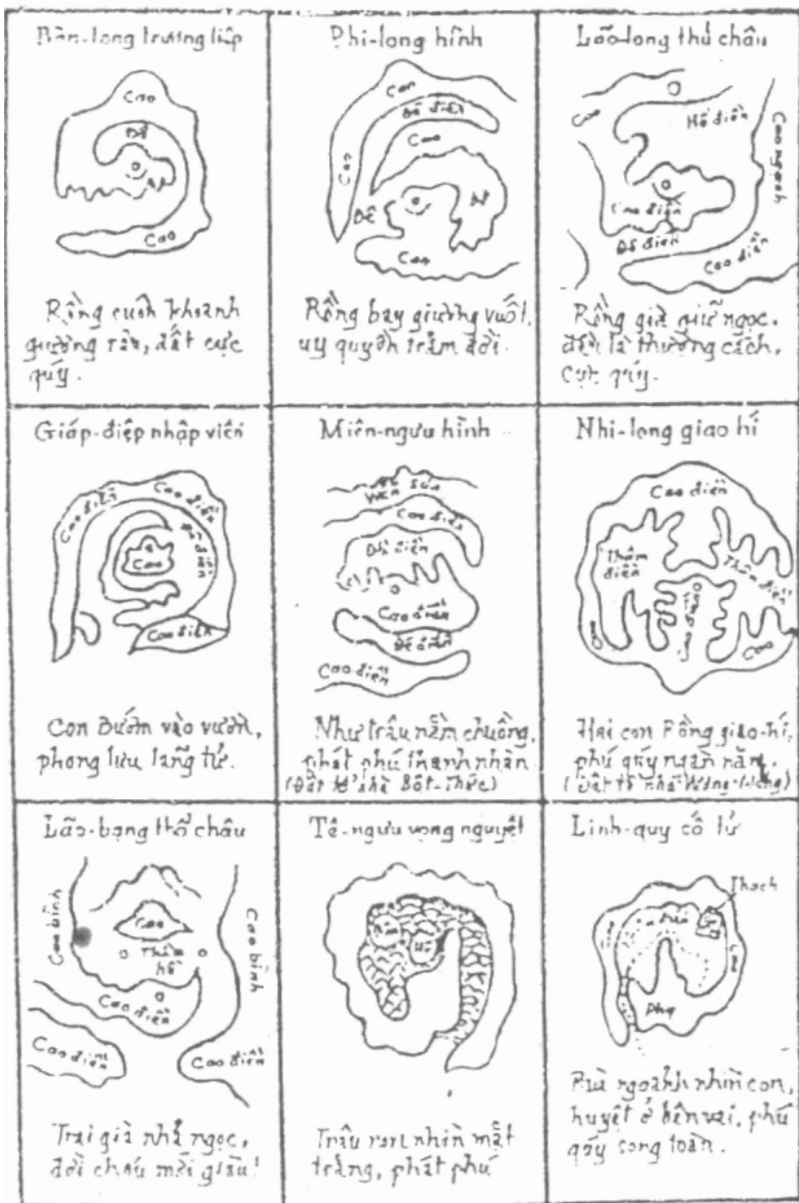 Bàn-long trương liệp
Cao
Đê
Cao
Rồng cuốn khoanh
giương râu, đất cực
qúy.
Phi-long hình
Cao
Đê điền
Cao
Cao
Đê
Cao
Rồng bay giương vuốt,
uy quyền trăm đời.
Lão-long thủ châu
Hồ điền
Cao điền
Đê điền
Cao điền
Rồng già giữ ngọc,
đều là thượng cách,
cực qúy.
Giáp-điệp nhập viên
Cao điền
Cao điền
Cao
Cao điền
Con Bướm vào vườn,
phong lưu lãng tử.
Miên-ngưu hình
Cao điền
Đê điền
Cao điền
Đê điền
Cao điền
Như trâu nằm chuồng,
phát phú thanh nhàn
(Đất tổ nhà Bột-Thức)
Nhi-long giao hí
Cao điền
Thâm
điền
Thâm điền
Cao
Hai con Rồng giao-hí,
phú qúy ngàn năm.
Lão-bạng thổ châu
Cao bình
Cao
Thâm
hồ
Cao bình
Cao điền
Cao điền
Cao điền
Trai già nhả ngọc,
đời cháu mới giầu!
Tê-ngưu vọng nguyệt
Trâu nhìn mặt
trăng, phát phú
Linh-quy cố tử
Thạch
Rùa ngoảnh nhìn con,
huyệt ở bên vai, phú
qúy song toàn.